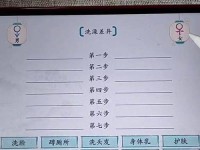 洗澡差异
第一步
第二步
第三步
第四步
第五步
第六步
第七步
洗脸 蹲厕所 洗头发 身体乳 护肤